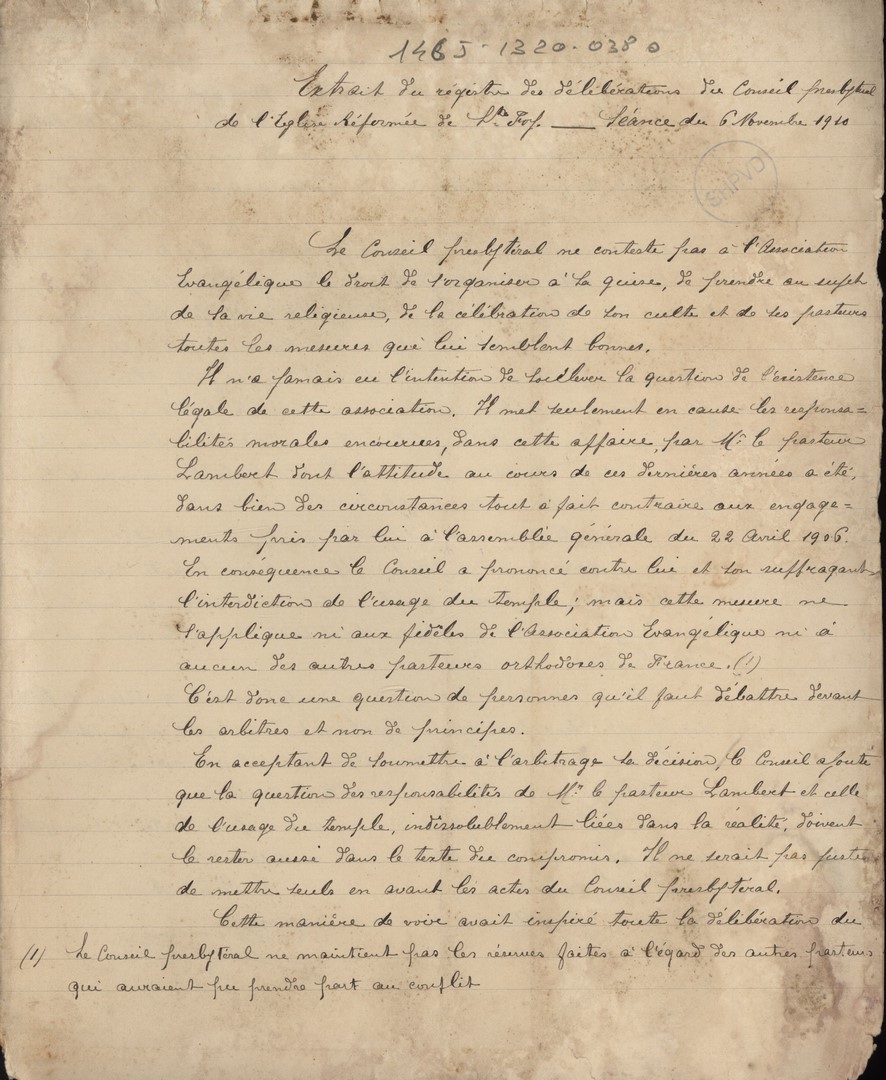 1465-1320-0380
Extrait du régistre des délibérations du Conseil presbytéral
de l'Eglise Réformée de Ste Foy. — Séance du 6 Novembre 1910
SHPVD
Le Conseil presbytéral ne conteste pas à l'Association
Evangélique le droit de s'organiser à sa guise, de prendre au sujet
de sa vie religieuse, de la célébration de son culte et de ses pasteurs
toutes les mesures qui lui semblent bonnes.
Il n'a jamais eu l'intention de soulever la question de l'existence
légale de cette association. Il met seulement en cause les responsa=
bilités morales encourues, dans cette affaire, par Mr. le pasteur
Lambert dont l'attitude au cours de ces dernières années a été,
dans bien des circonstances tout à fait contraire aux engage=
ments pris par lui à l'assemblée générale du 22 Avril 1906.
En conséquence le Conseil a prononcé contre lui et son suffragant
l'interdiction de l'usage du temple; mais cette mesure ne
s'applique ni aux fidèles de l'Association Evangélique ni à
aucun des autres pasteurs orthodoxes de France. (1)
C'est donc une question de personnes qu'il faut débattre devant
les arbitres et non de principes.
En acceptant de soumettre à l'arbitrage sa décision, le Conseil ajoute
que la question des responsabilités de Mr. le pasteur Lambert et celle
de l'usage du temple, indissolublement liées dans la réalité, doivent
le rester aussi dans le texte du compromis. Il ne serait pas juste
de mettre seuls en avant les actes du Conseil presbytéral.
Cette manière de voir avait inspiré toute la délibération du
(1) Le Conseil presbytéral ne maintient pas les réserves faites à l'égard des autres pasteurs
qui auraient pu prendre part au conflit